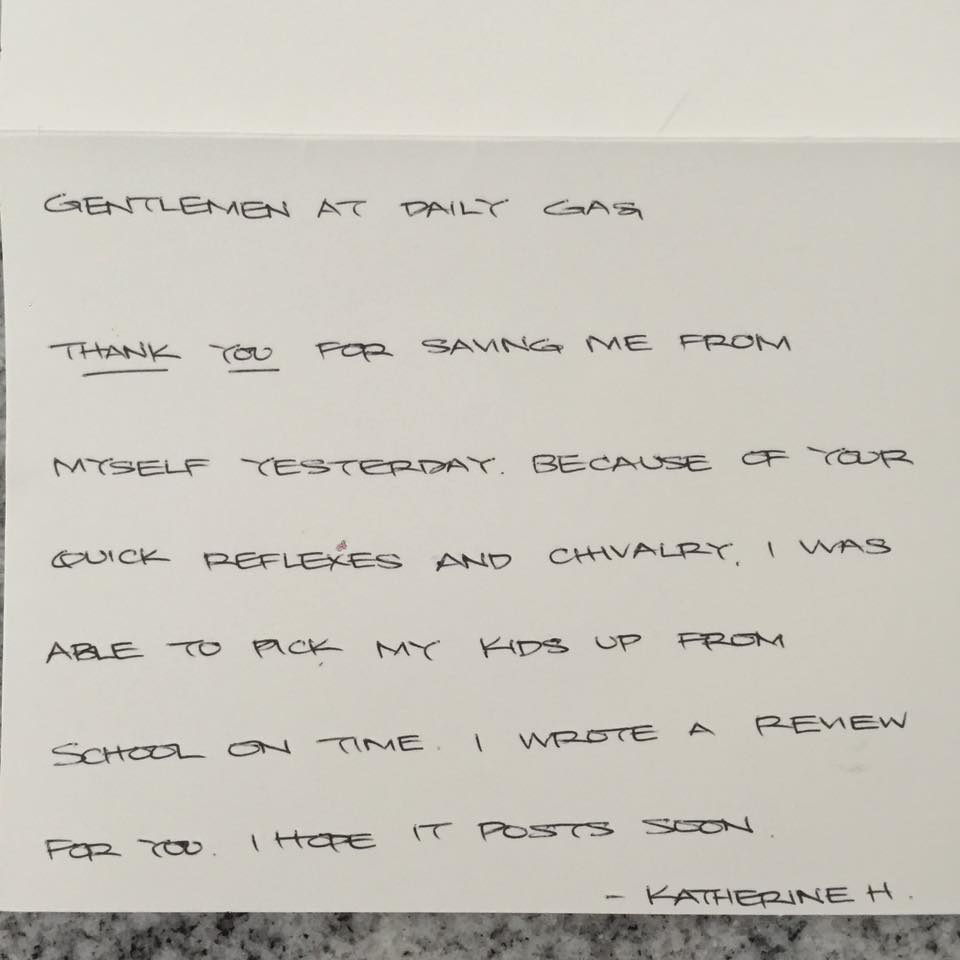 GENTLEMEN AT DAILY GAS
THANK YOU FOR SAVING ME FROM
MYSELF YESTERDAY. BECAUSE OF YOUR
QUICK REFLEXES AND CHIVALRY, I WAS
ABLE TO PICK MY KIDS UP FROM
SCHOOL ON TIME. I WROTE A REVIEW
FOR YOU. I HOPE IT POSTS SOON.
- KATHERINE H.